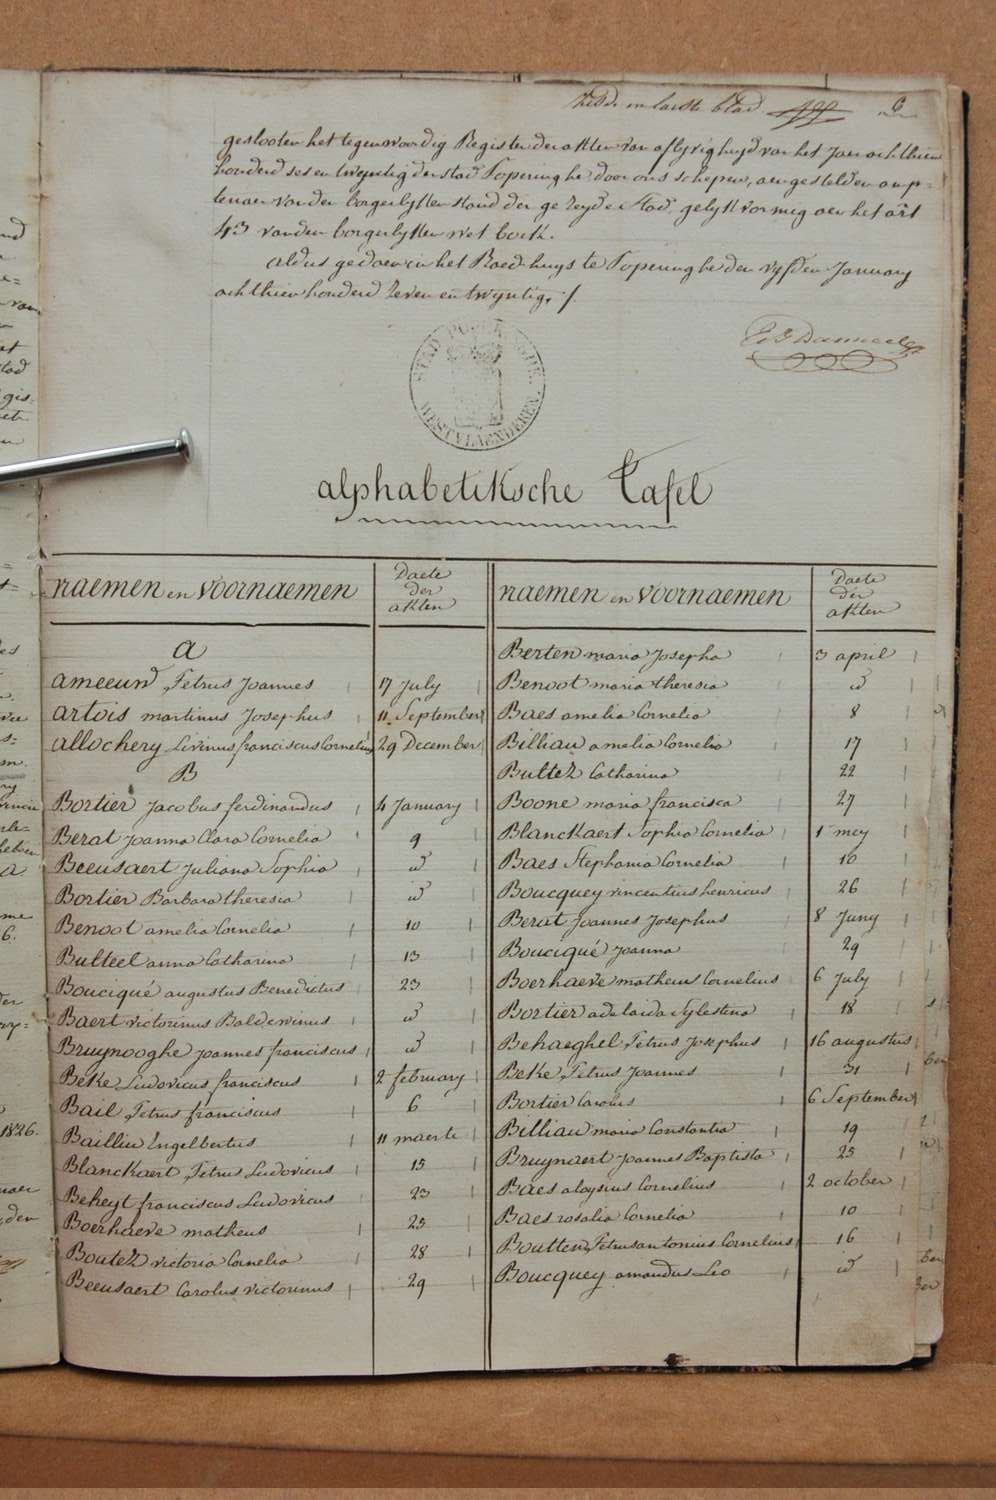 en laeste blad
geslooten het tegenwoordig Register der akten van aflyvigheyd van het Jaer achthien
honderd ses en twyntig der stad Poperinghe, door ons schepen, aengestelden amp-
tenaer van den borgerlykken stand der gezeyde Stad, gelykvormig aen het art
43 van den borgerlykken wet boek.
aldus gedaen in het Raedhuys te Poperinghe den vyfden January
achthien honderd zeven en twyntig. /.
STAD POPERINGHE.
WESTVLAENDEREN.
alphabetiksche Tafel
naemen en voornaemen
Daete
der
akten
A
Ameeuw Petrus Joannes 17 July
Artois martinus Josephus 11 September
Allochery Livinus franciscus Cornelius 29 December
B
Bortier Jacobus ferdinandus 4 January
Berat Joanna Clara Cornelia 9
Beeusaert Juliana Sophia id
Bortier Barbara theresia id
Benoot amelia Cornelia 10
Bulteel anna Catharina 13
Bouciqué augustus Benedictus 23
Baert victorinus Balderinus id
Bruynooghe joannes franciscus id
Beke Ludovicus franciscus 2 february
Bail Petrus franciscus 6
Bailliu Engelbertus 11 maerte
Blanckaert Petrus Ludovicus 15
Beheyt franciscus Ludovicus 23
Boerhaeve matheus 25
Boutez victoria Cornelia 28
Beeusaert Carolus victorinus 29
naemen en voornaemen
Daete
der
akten
Berten maria Josepha 3 april
Benoot maria theresia id
Baes amelia Cornelia 8
Billiau amelia Cornelia 17
Bultez Catharina 22
Boone maria francisca 27
Blanckaert Sophia Cornelia 1 mey
Baes Stephania Cornelia 10
Boucquey vincentius henricus 26
Berat Joannes Josephus 8 Juny
Bouciqué Joanna 29
Boerhaeve matheus Cornelius 6 July
Bortier adelaida Sylestina 18
Behaeghel Petrus Josephus 16 augustus
Beke Petrus Joannes 31
Bortier Carolus 6 September
Billiau maria Constantia 19
Bruynaert Joannes Baptista 25
Baes aloysius Cornelius 2 october
Baes rosalia Cornelia 10
Boutten Petrus antonius Cornelius 16
Boucquey amandus Leo id
1826.